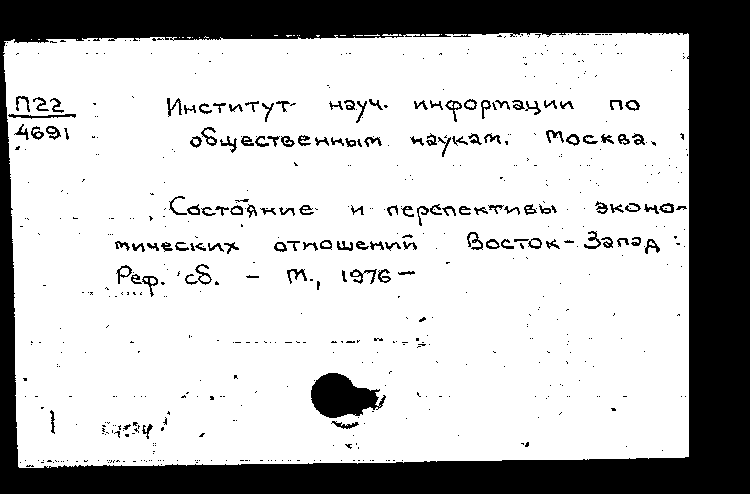 П22
4691
Институт науч. информации по
общественным наукам. Москва.
Состояние и перспективы эконо-
мических отношений Восток-Запад:
Реф. сб. – М., 1976 –